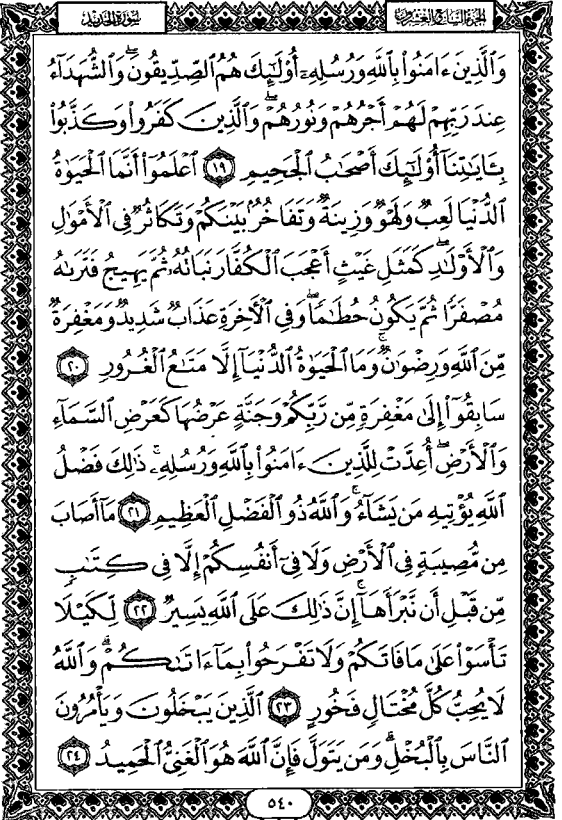 سورة الحديد
الجزء السابع والعشرون
وَالَّذِينَ ءَامَنُوا۟ بِاللَّهِ وَرُسُلِهِۦٓ أُو۟لَٰٓئِكَ هُمُ الصِّدِّيقُونَ ۖ وَالشُّهَدَآءُ
عِندَ رَبِّهِمْ لَهُمْ أَجْرُهُمْ وَنُورُهُمْ ۖ وَالَّذِينَ كَفَرُوا۟ وَكَذَّبُوا۟
بِـَٔايَٰتِنَآ أُو۟لَٰٓئِكَ أَصْحَٰبُ الْجَحِيمِ ١٩ اعْلَمُوٓا۟ أَنَّمَا الْحَيَوٰةُ
الدُّنْيَا لَعِبٌ وَلَهْوٌ وَزِينَةٌ وَتَفَاخُرٌۢ بَيْنَكُمْ وَتَكَاثُرٌ فِى الْأَمْوَٰلِ
وَالْأَوْلَٰدِ ۖ كَمَثَلِ غَيْثٍ أَعْجَبَ الْكُفَّارَ نَبَاتُهُۥ ثُمَّ يَهِيجُ فَتَرَىٰهُ
مُصْفَرًّا ثُمَّ يَكُونُ حُطَٰمًا ۖ وَفِى الْـَٔاخِرَةِ عَذَابٌ شَدِيدٌ وَمَغْفِرَةٌ
مِّنَ اللَّهِ وَرِضْوَٰنٌ ۚ وَمَا الْحَيَوٰةُ الدُّنْيَآ إِلَّا مَتَٰعُ الْغُرُورِ ٢٠
سَابِقُوٓا۟ إِلَىٰ مَغْفِرَةٍ مِّن رَّبِّكُمْ وَجَنَّةٍ عَرْضُهَا كَعَرْضِ السَّمَآءِ
وَالْأَرْضِ ۖ أُعِدَّتْ لِلَّذِينَ ءَامَنُوا۟ بِاللَّهِ وَرُسُلِهِۦ ۚ ذَٰلِكَ فَضْلُ
اللَّهِ يُؤْتِيهِ مَن يَشَآءُ ۚ وَاللَّهُ ذُو الْفَضْلِ الْعَظِيمِ ٢١ مَآ أَصَابَ
مِن مُّصِيبَةٍ فِى الْأَرْضِ وَلَا فِىٓ أَنفُسِكُمْ إِلَّا فِى كِتَٰبٍ
مِّن قَبْلِ أَن نَّبْرَأَهَآ ۚ إِنَّ ذَٰلِكَ عَلَى اللَّهِ يَسِيرٌ ٢٢ لِّكَيْلَا
تَأْسَوْا۟ عَلَىٰ مَا فَاتَكُمْ وَلَا تَفْرَحُوا۟ بِمَآ ءَاتَىٰكُمْ ۗ وَاللَّهُ
لَا يُحِبُّ كُلَّ مُخْتَالٍ فَخُورٍ ٢٣ الَّذِينَ يَبْخَلُونَ وَيَأْمُرُونَ
النَّاسَ بِالْبُخْلِ ۗ وَمَن يَتَوَلَّ فَإِنَّ اللَّهَ هُوَ الْغَنِىُّ الْحَمِيدُ ٢٤
٥٤٠